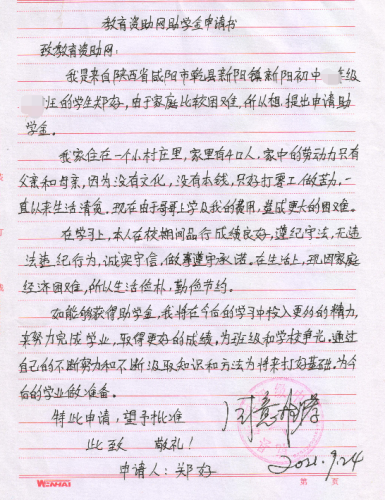 教育资助网助学金申请书
致教育资助网：
我是来自陕西省咸阳市乾县新阳镇新阳初中 年级
班的学生郑好，由于家庭比较困难，所以想提出申请助
学金。
我家住在一个小村庄里，家里有4口人，家中的劳动力只有
父亲和母亲，因为没有文化，没有本钱，只好打零工做苦力，一
直以来生活清贫。现在由于哥哥上学及我的费用，造成更大的困难。
在学习上，本人在校期间品行成绩良好，遵纪守法，无违
法违纪行为，诚实守信，做事遵守承诺。在生活上，现因家庭
经济困难，所以生活俭朴，勤俭节约。
如能够获得助学金，我将在今后的学习中投入更好的精力，
来努力完成学业，取得更好的成绩，为班级和学校争光，通过
自己的不断努力和不断汲取知识和方法为将来打好基础。为今
后的学业做准备。
特此申请，望予批准
同意
此致 敬礼！
2021.9.24
申请人：郑好
WENHAI
第 页